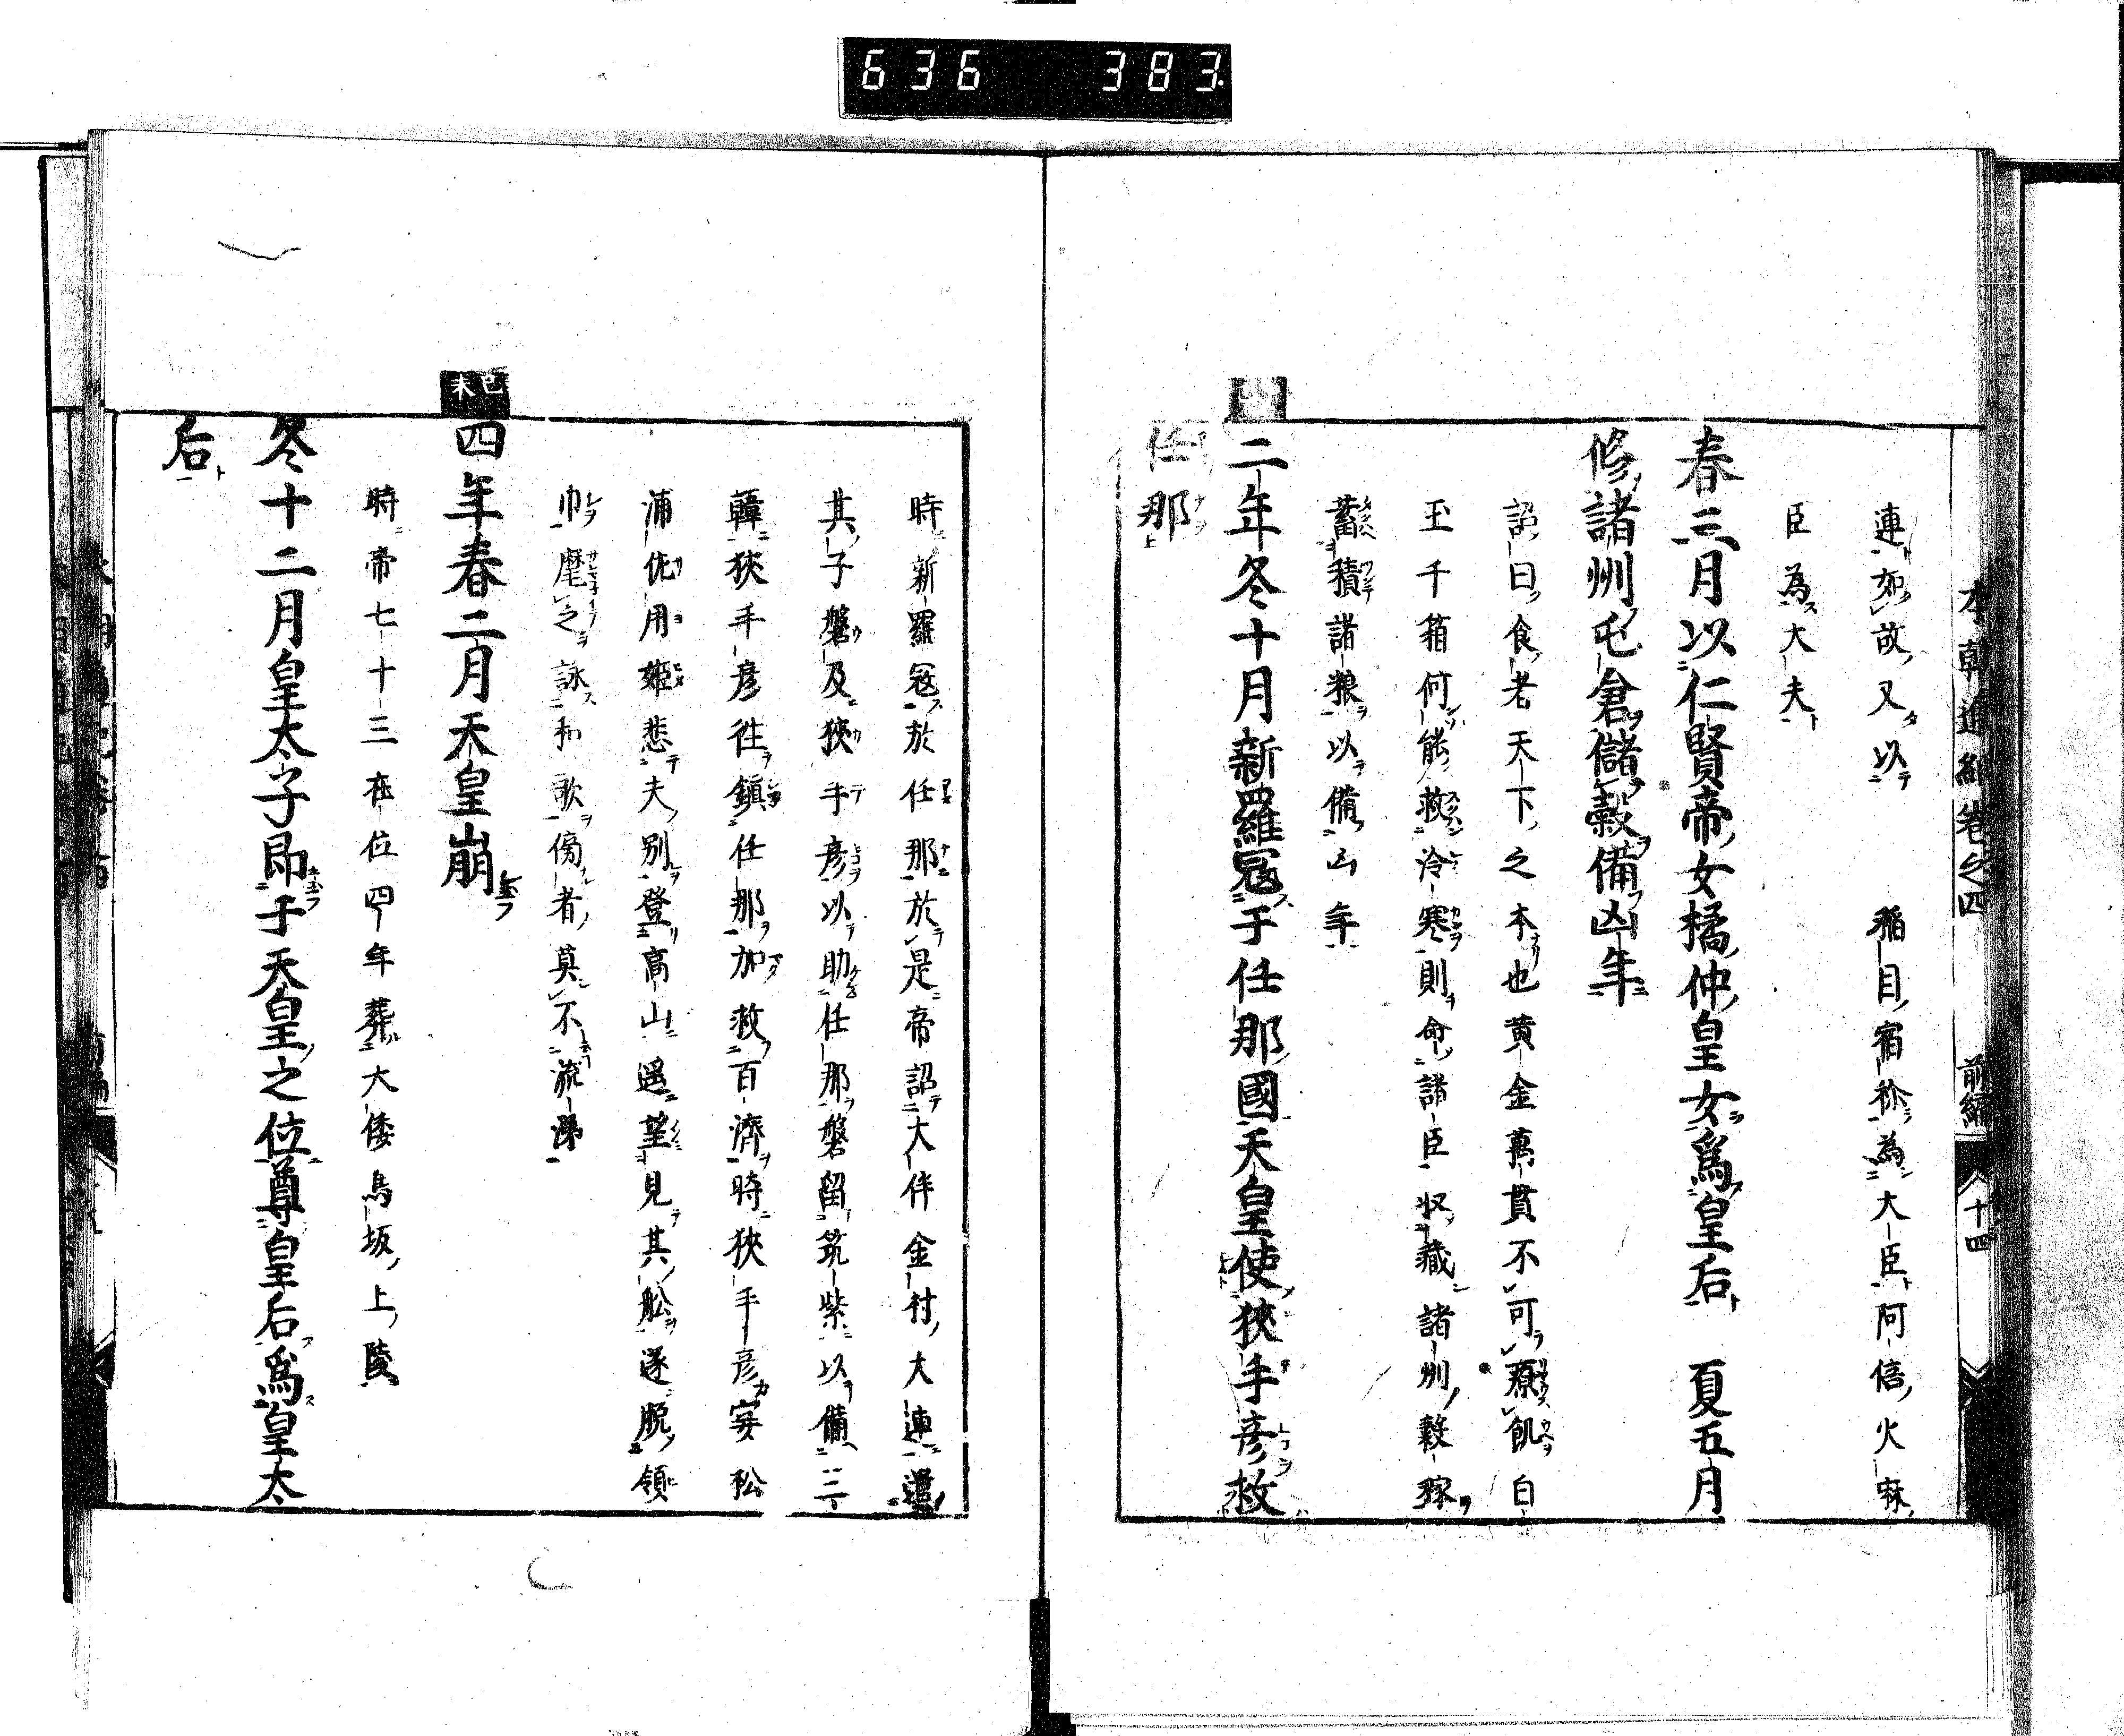 636 383
本朝通紀卷之四 前編 十四
連如故又以 稲目宿祢為大臣阿倍火麻
臣為大夫
春三月以仁賢帝女橘仲皇女爲皇后 夏五月
修諸州屯倉儲穀備凶年
詔曰食者天下之本也黄金萬貫不可療飢白
玉千箱何能救冷寒則命諸臣収藏諸州穀稼
蓄積諸粮以備凶年
二年冬十月新羅冦于任那國天皇使狹手彦救
任那
時新羅冦於任那於是帝詔大伴金村大連遣
其子磐及狹手彦以助任那磐留筑紫以備三
韓狹手彦往鎭任那加救百濟時狹手彦妾松
浦佐用姫悲夫別登高山遥望見其舩遂脱領
巾麾之詠和歌傍者莫不流涕
己未
四年春二月天皇崩
時帝七十三在位四年葬大倭鳥坂上陵
冬十二月皇太子即于天皇之位尊皇后爲皇太
后